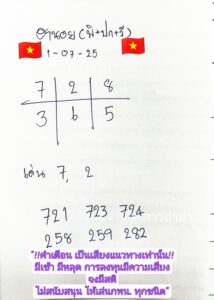 ฮานอย (พิ+ปก+วี)
1-07-25
7 2 8
3 6 5
เด่น 7, 2
721 723 724
258 259 282
"!!คำเตือน เป็นเสียงแนวทางเท่านั้น!!
มีเข้า มีหลุด การลงทุนมีความเสี่ยง
จงมีสติ
ไม่สนับสนุน ให้เล่นกพน. ทุกชนิด"